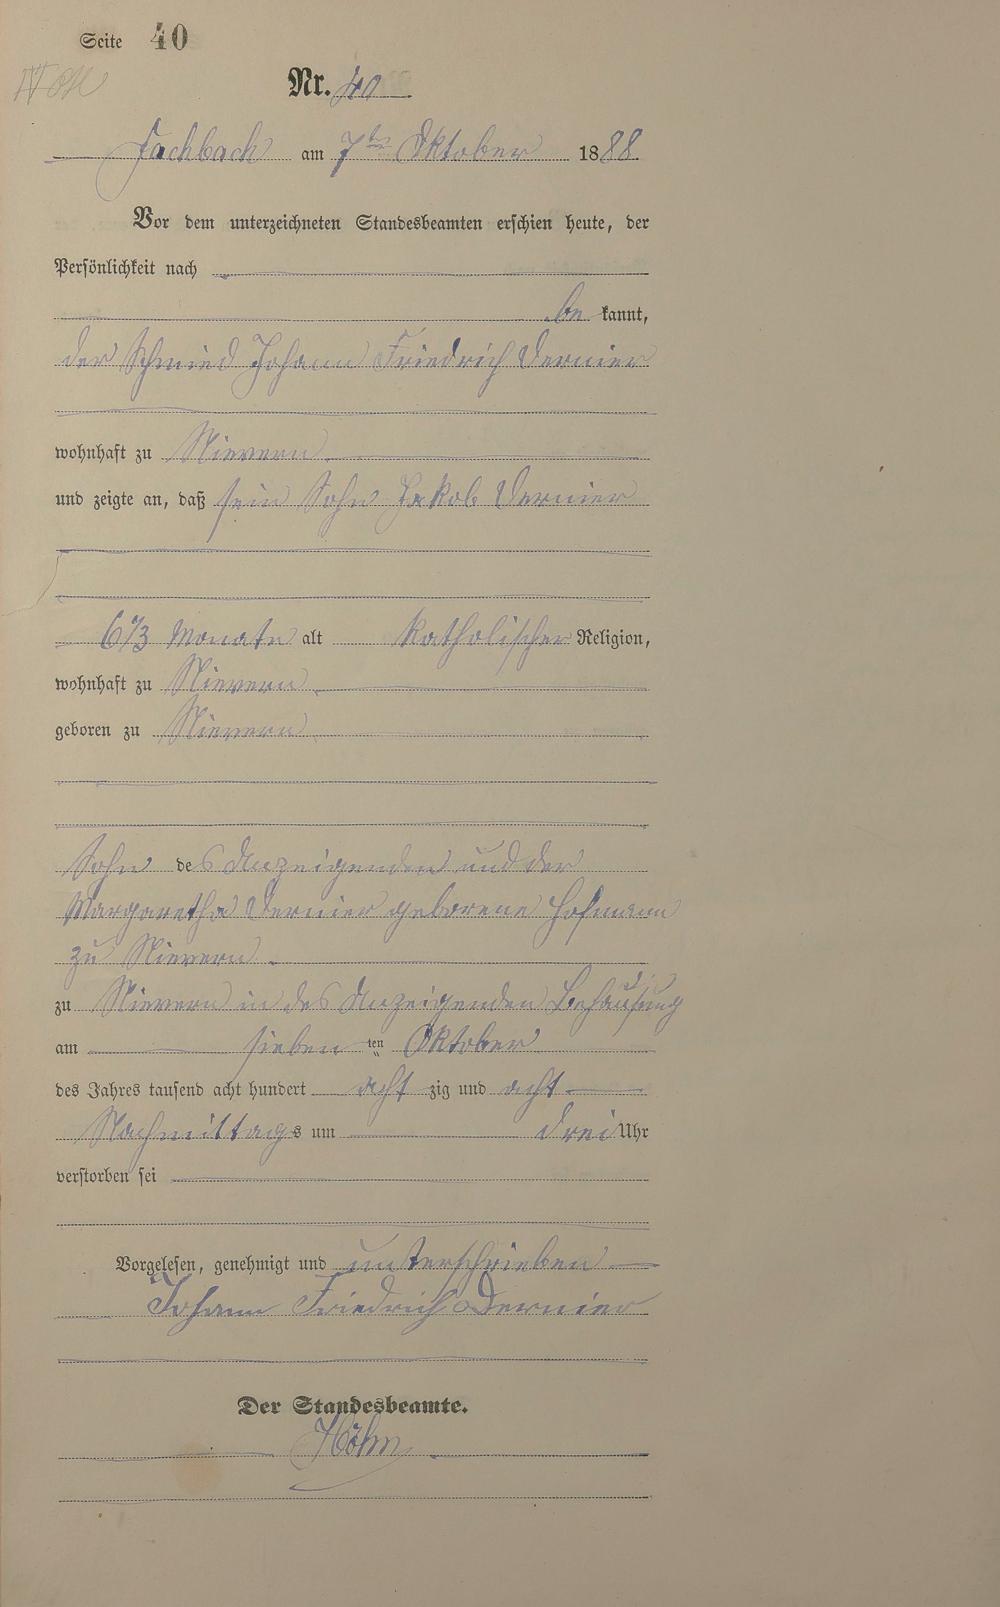 Seite 40
Nr. 40
Fachbach am 7ten Oktober 1888
Vor dem unterzeichneten Standesbeamten erschien heute, der
Persönlichkeit nach
be kannt,
der Schmied Johann Friedrich Dernier
wohnhaft zu Nievern
und zeigte an, daß sein Sohn Jakob Dernier
6 2/3 Monate alt katholischer Religion,
wohnhaft zu Nievern
geboren zu Nievern
Sohn des Anzeigenden und der
Margaretha Dernier geborene Hofmann
zu Nievern
zu Nievern in des Anzeigenden Behausung
am sieben ten Oktober
des Jahres tausend acht hundert acht zig und acht
Nachmittags um drei Uhr
verstorben sei
Vorgelesen, genehmigt und unterschrieben
Johann Friedrich Dernier
Der Standesbeamte.
Höhn